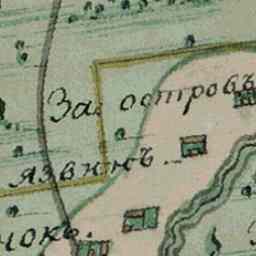 За островъ
язвинъ.
нокъ.